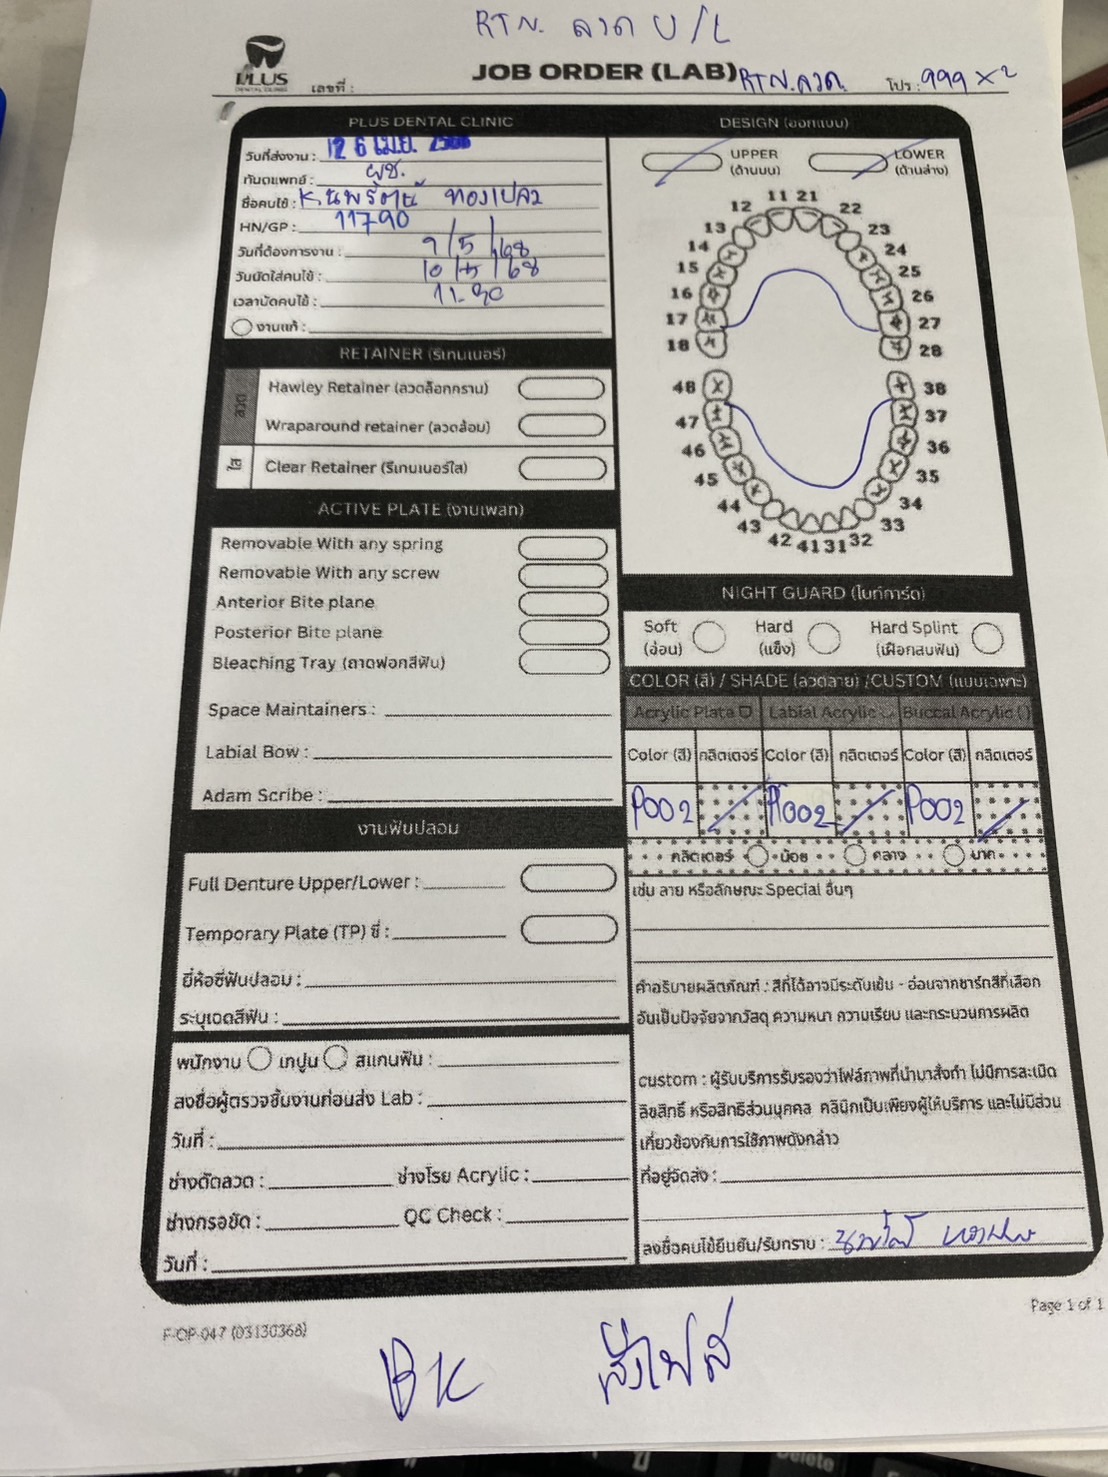 RTN. ลวด U/L
PLUS
DENTAL CLINIC
เลขที่ :
JOB ORDER (LAB) RTN.ลวด. โปร : 999 x 2
PLUS DENTAL CLINIC
วันที่ส่งงาน : 26 เม.ย.
ทันตแพทย์ : ผช.
ชื่อคนไข้ : K.นพรัตน์ ทองเปลว
HN/GP : 11790
วันที่ต้องการงาน : 9/5/68
วันนัดใส่คนไข้ : 10/5/68
เวลานัดคนไข้ : 11.30
งานแก้ :
RETAINER (รีเทนเนอร์)
ลวด
Hawley Retainer (ลวดล็อกกราม)
Wraparound retainer (ลวดล้อม)
ใส
Clear Retainer (รีเทนเนอร์ใส)
ACTIVE PLATE (งานเพลท)
Removable With any spring
Removable With any screw
Anterior Bite plane
Posterior Bite plane
Bleaching Tray (ถาดฟอกสีฟัน)
Space Maintainers :
Labial Bow :
Adam Scribe :
งานฟันปลอม
Full Denture Upper/Lower :
Temporary Plate (TP) ซี่ :
ยี่ห้อซี่ฟันปลอม :
ระบุเฉดสีฟัน :
พนักงาน เทปูน สแกนฟัน :
ลงชื่อผู้ตรวจชิ้นงานก่อนส่ง Lab :
วันที่ :
ช่างดัดลวด : ช่างโรย Acrylic :
ช่างกรอขัด : QC Check :
วันที่ :
DESIGN (ออกแบบ)
UPPER (ด้านบน)
LOWER (ด้านล่าง)
11 21
12 22
13 23
14 24
15 25
16 26
17 27
18 28
48 38
47 37
46 36
45 35
44 34
43 33
42 41 31 32
NIGHT GUARD (ไนท์การ์ด)
Soft (อ่อน)
Hard (แข็ง)
Hard Splint (เฝือกสบฟัน)
COLOR (สี) / SHADE (ลวดลาย) /CUSTOM (แบบเฉพาะ)
Acrylic Plata Labial Acrylic Buccal Acrylic ( )
Color (สี) กลิตเตอร์ Color (สี) กลิตเตอร์ Color (สี) กลิตเตอร์
P002 P002 P002
กลิตเตอร์ น้อย กลาง มาก
เช่น ลาย หรือลักษณะ Special อื่นๆ
คำอธิบายผลิตภัณฑ์ : สีที่ได้อาจมีระดับเข้ม - อ่อนจากชาร์ทสีที่เลือก
อันเป็นปัจจัยจากวัสดุ ความหนา ความเรียบ และกระบวนการผลิต
custom : ผู้รับบริการรับรองว่าไฟล์ภาพที่นำมาสั่งทำ ไม่มีการละเมิด
ลิขสิทธิ์ หรือสิทธิส่วนบุคคล คลินิกเป็นเพียงผู้ให้บริการ และไม่มีส่วน
เกี่ยวข้องกับการใช้ภาพดังกล่าว
ที่อยู่จัดส่ง :
ลงชื่อคนไข้ยืนยัน/รับทราบ :
Page 1 of 1
F-OP-047 (03130368)
BK ส่งไฟล์
Delete